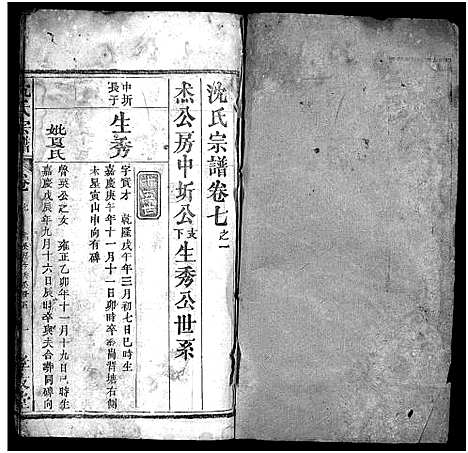 沈氏宗譜卷七之一
杰公房中圻公支下生秀公世系
中圻長子
生秀
字實才 乾隆戊午年三月初七日巳時生
嘉慶庚午年十一月十一日卯時卒葬崗背塘右側
未屋寅山申向有碑
妣夏氏
魯英公之女 雍正乙卯年十一月十九日巳時生
嘉慶戊辰年九月十六日辰時卒與夫合塟同碑向
沈氏宗譜
卷